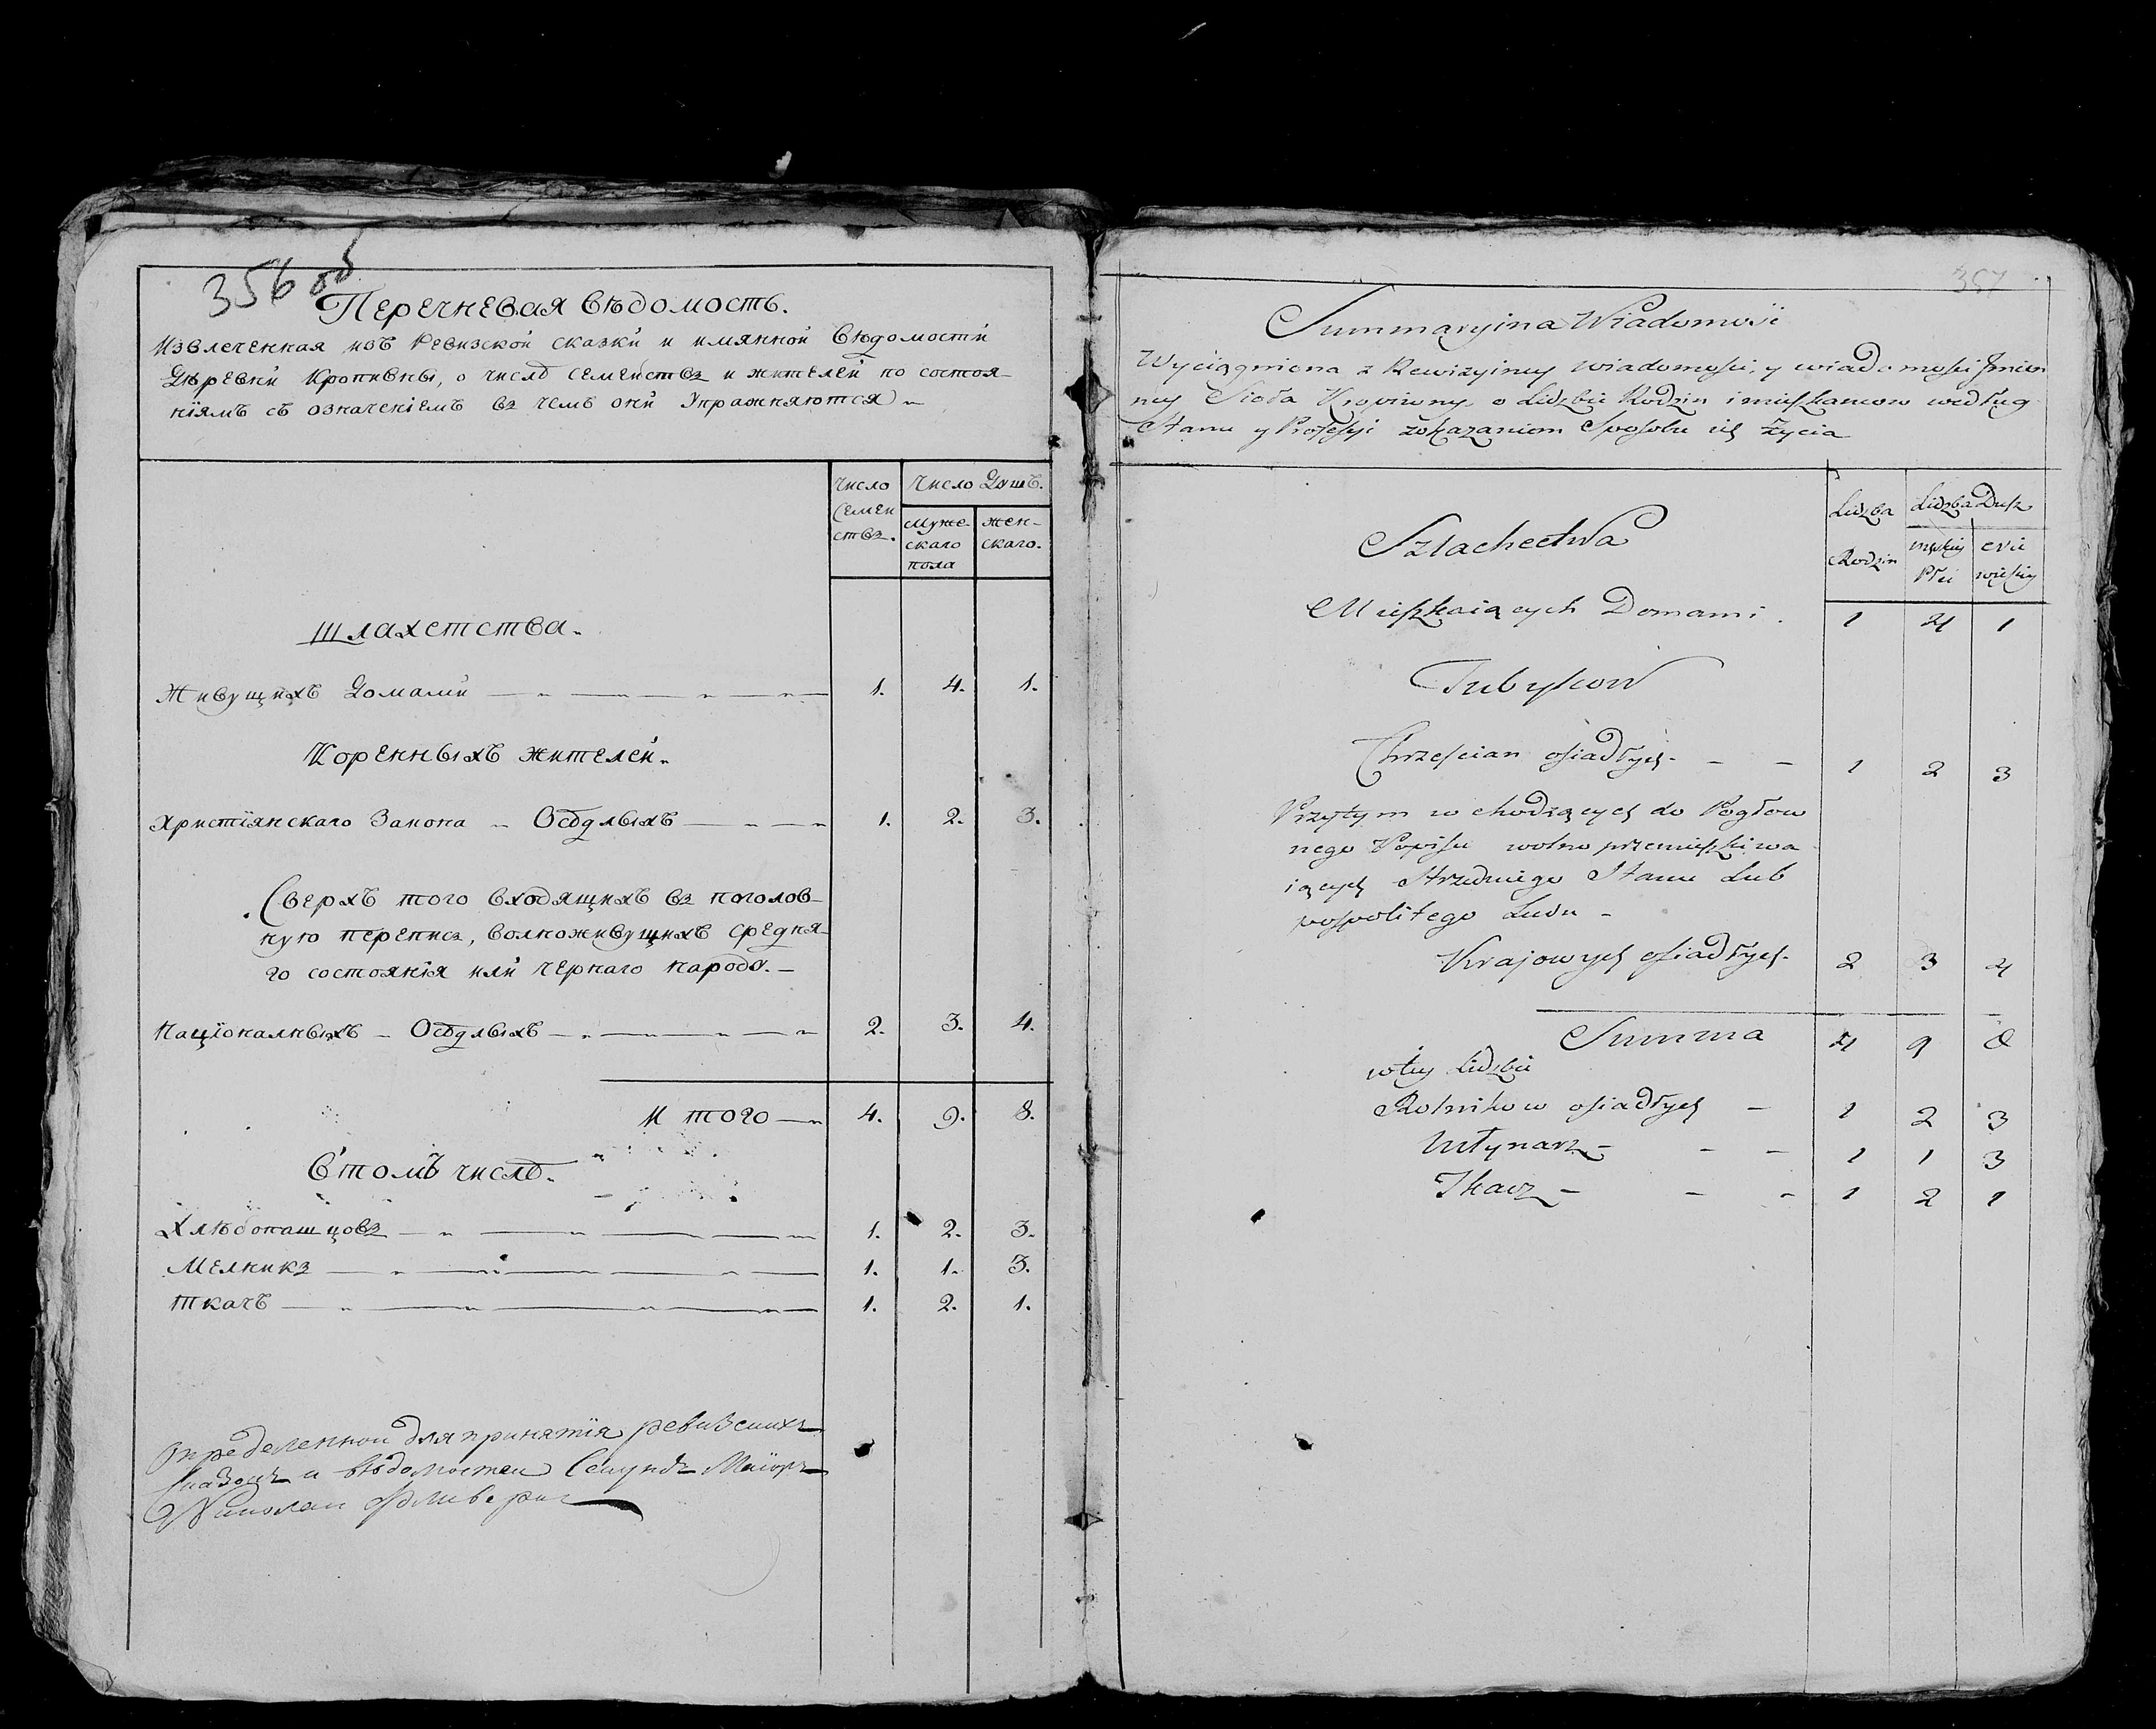 356 об
Перечневая вѣдомость.
Извлеченная изъ Ревизской сказки и имянной Вѣдомости
Деревни Кропивны, о числѣ семействъ и жителей по состоя-
нїямъ съ означенїемъ въ чемъ они Упражняются
Число семействъ.
Число Душъ.
Мужескаго пола
Женскаго.
Шлахетства.
Живущихъ Домами 1. 4. 1.
Коренныхъ жителей.
Христїянскаго Закона – Осѣдлыхъ 1. 2. 3.
Сверхъ того входящихъ въ поголов-
ную перепись, волноживущихъ средня-
го состоянїя или чернаго народу. –
Націоналныхъ – Осѣдлыхъ 2. 3. 4.
И того 4. 9. 8.
В'томъ числѣ.
Хлѣбопашцовъ 1. 2. 3.
Мелникъ 1. 1. 3.
Ткачъ 1. 2. 1.
Определенной для принятїя ревизскихъ
сказокъ и вѣдомостей Секундъ Маїоръ
Николай
357
Summaryina Wiadomość
Wyciągniona z Rewizyiney wiadomości, y wiadomości Jmien
ney Sioła Kropiwny o Lidzbie Rodzin i mieszkancow według
Stanu y Professyi zokazaniem Sposobu ich życia
Lidzba Rodzin
Lidzba Dusz
męskiey Płci
Szlachectwa
Mieszkaiących Domami. 1 4 1
Tubylcow
Chrzescian osiadłych – – 1 2 3
Przytym w chodzących do Pogłow
nego Popisu wolno przemieszkiwa
iących Strzedniego Stanu Lub
pospolitego Ludu –
Krajowych osiadłych. 2 3 4
Summa 4 9 8
w tey Lidzbie
Rolnikow osiadłych – 1 2 3
Młynarz – – – 1 1 3
Tkacz – – – 1 2 1